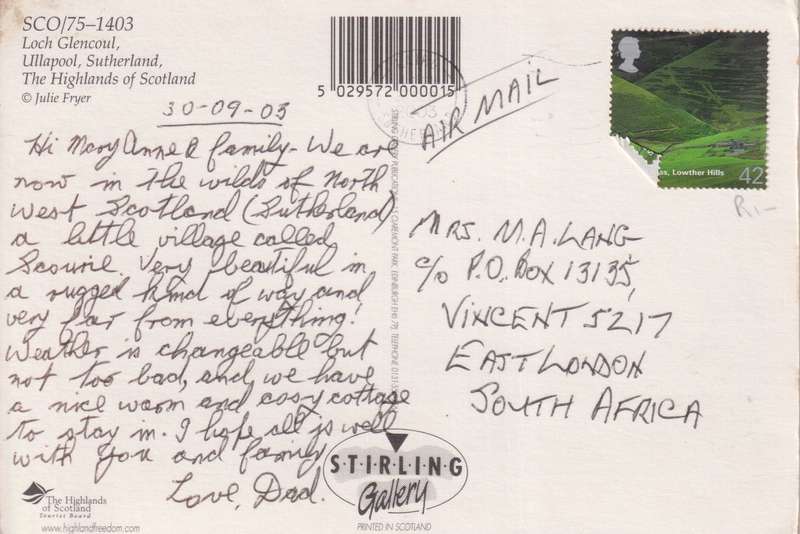 SCO/75–1403
Loch Glencoul,
Ullapool, Sutherland,
The Highlands of Scotland
© Julie Fryer
5 029572 000015
30-09-03
Hi Mary Anne & family - We are
now in the wilds of North
West Scotland (Sutherland)
a little village called
Scourie. Very beautiful in
a rugged kind of way and
very far from everything!
Weather is changeable but
not too bad, and we have
a nice warm and cosy cottage
to stay in. I hope all is well
with you and family
Love, Dad.
AIR MAIL
Lowther Hills
42
R1-
MRS. M.A. LANG
c/o P.O. BOX 13135,
VINCENT 5217
EAST LONDON
SOUTH AFRICA
STIRLING
Gallery
PRINTED IN SCOTLAND
The Highlands
of Scotland
Tourist Board
www.highlandfreedom.com